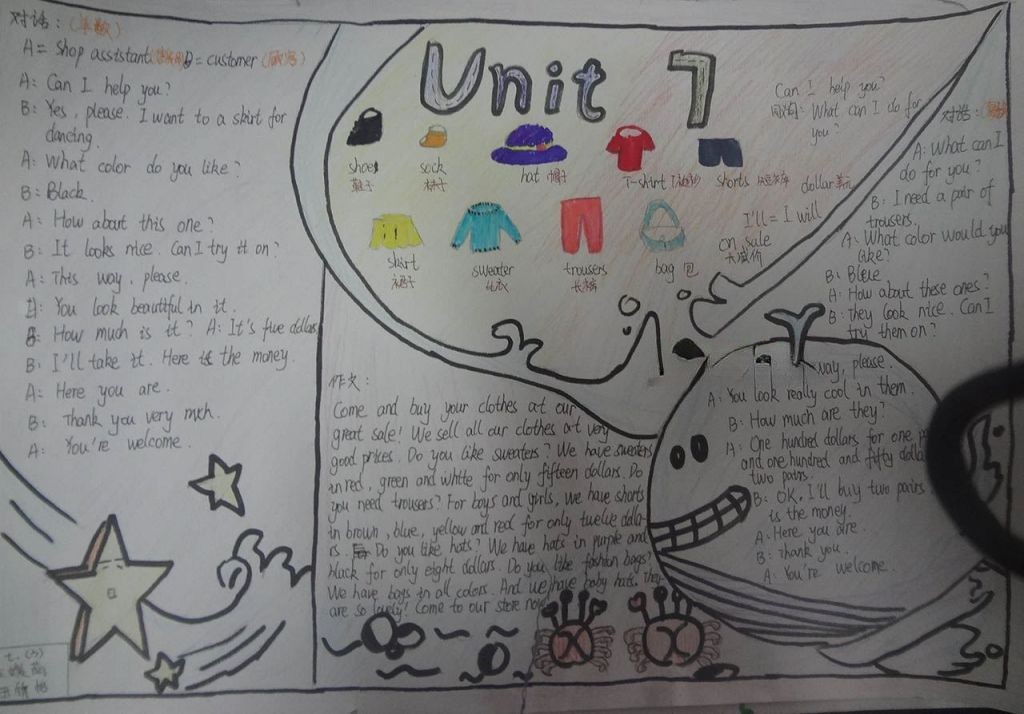 对话：（单数）
A = shop assistant B = customer（顾客）
A: Can I help you?
B: Yes, please. I want to a skirt for
dancing.
A: What color do you like?
B: Black.
A: How about this one?
B: It looks nice. Can I try it on?
A: This way, please.
You look beautiful in it.
B: How much is it? A: It's five dollars
B: I'll take it. Here is the money.
A: Here you are.
B: Thank you very much.
A: You're welcome.
Unit 7
shoes
鞋子
sock
袜子
hat 帽子
T-shirt T恤衫
shorts
skirt
裙子
sweater
毛衣
trousers
长裤
bag 包
Can I help you?
同义句: What can I do for
you?
dollar 美元
I'll = I will
on sale
大减价
作文：
Come and buy your clothes at our
great sale! We sell all our clothes at very
good prices. Do you like sweaters? We have sweaters
in red, green and white for only fifteen dollars. Do
you need trousers? For boys and girls, we have shorts
in brown, blue, yellow and red for only twelve dolla-
rs. Do you like hats? We have hats in purple and
black for only eight dollars. Do you like fashion bags?
We have bags in all colors. And we have baby hats. They
are so lovely! Come to our store now
对话：
A: What can I
do for you?
B: I need a pair of
trousers.
A: What color would you
like?
B: Blue
A: How about these ones?
B: They look nice. Can I
try them on?
way, please.
A: You look really cool in them.
B: How much are they?
A: One hundred dollars for one p
and one hundred and fifty dolla
two pairs.
B: OK, I'll buy two pairs
is the money.
A: Here you are.
B: Thank you.
A: You're welcome.